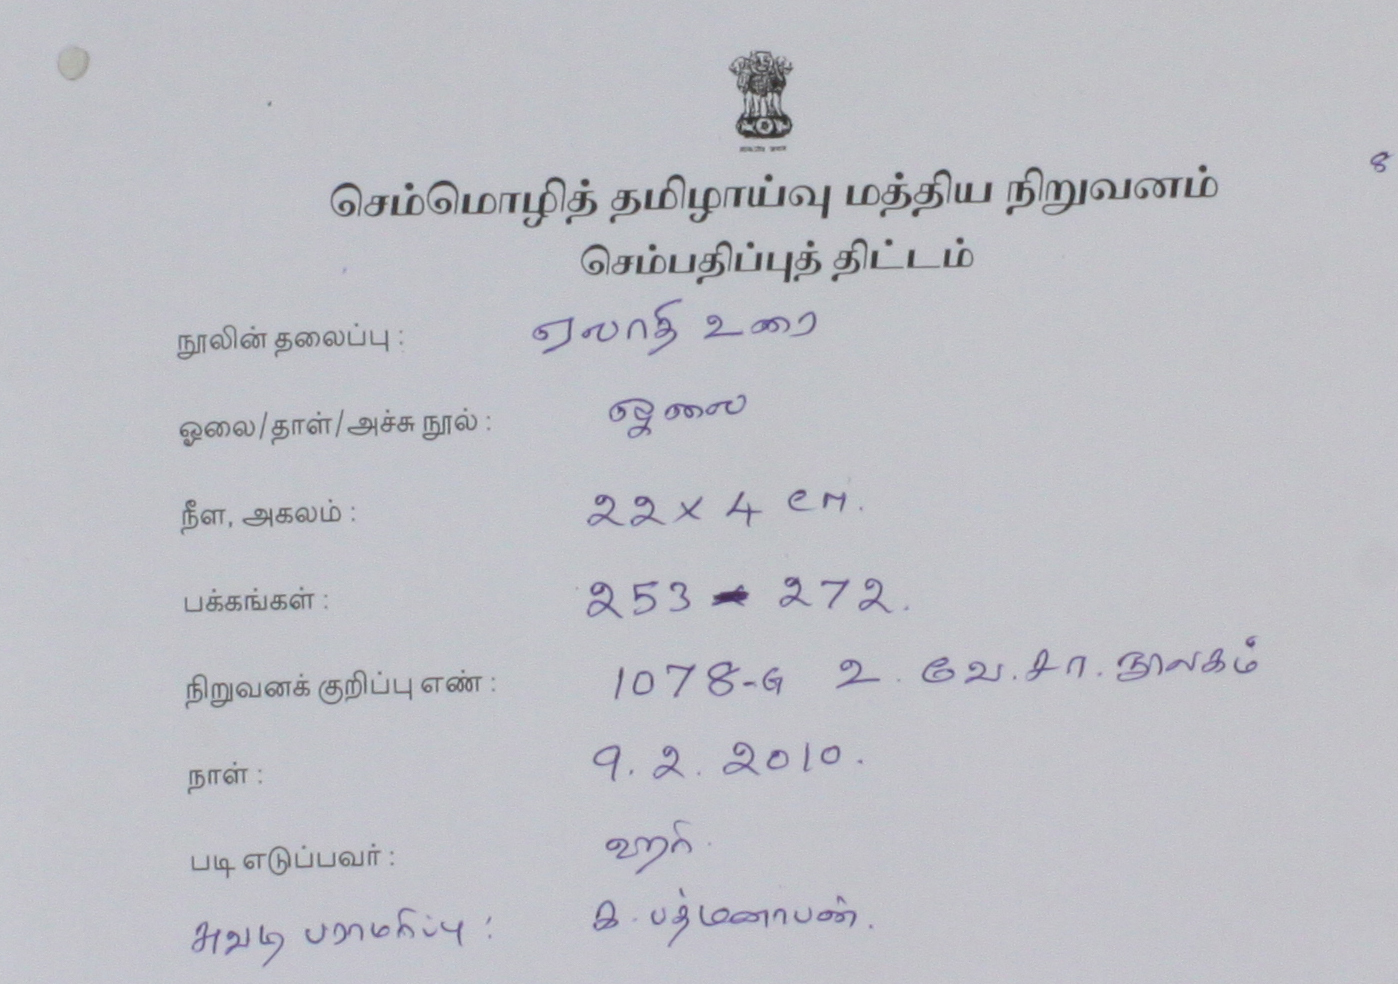 8
செம்மொழித் தமிழாய்வு மத்திய நிறுவனம்
செம்பதிப்புத் திட்டம்
நூலின் தலைப்பு : ஏலாதி உரை
ஓலை/தாள்/அச்சு நூல் : ஓலை
நீள, அகலம் : 22 x 4 cm.
பக்கங்கள் : 253 - 272.
நிறுவனக் குறிப்பு எண் : 1078-G உ. வே. சா. நூலகம்
நாள் : 9. 2. 2010.
படி எடுப்பவர் : ஹரி.
சுவடி பராமரிப்பு : க. பத்மனாபன்.